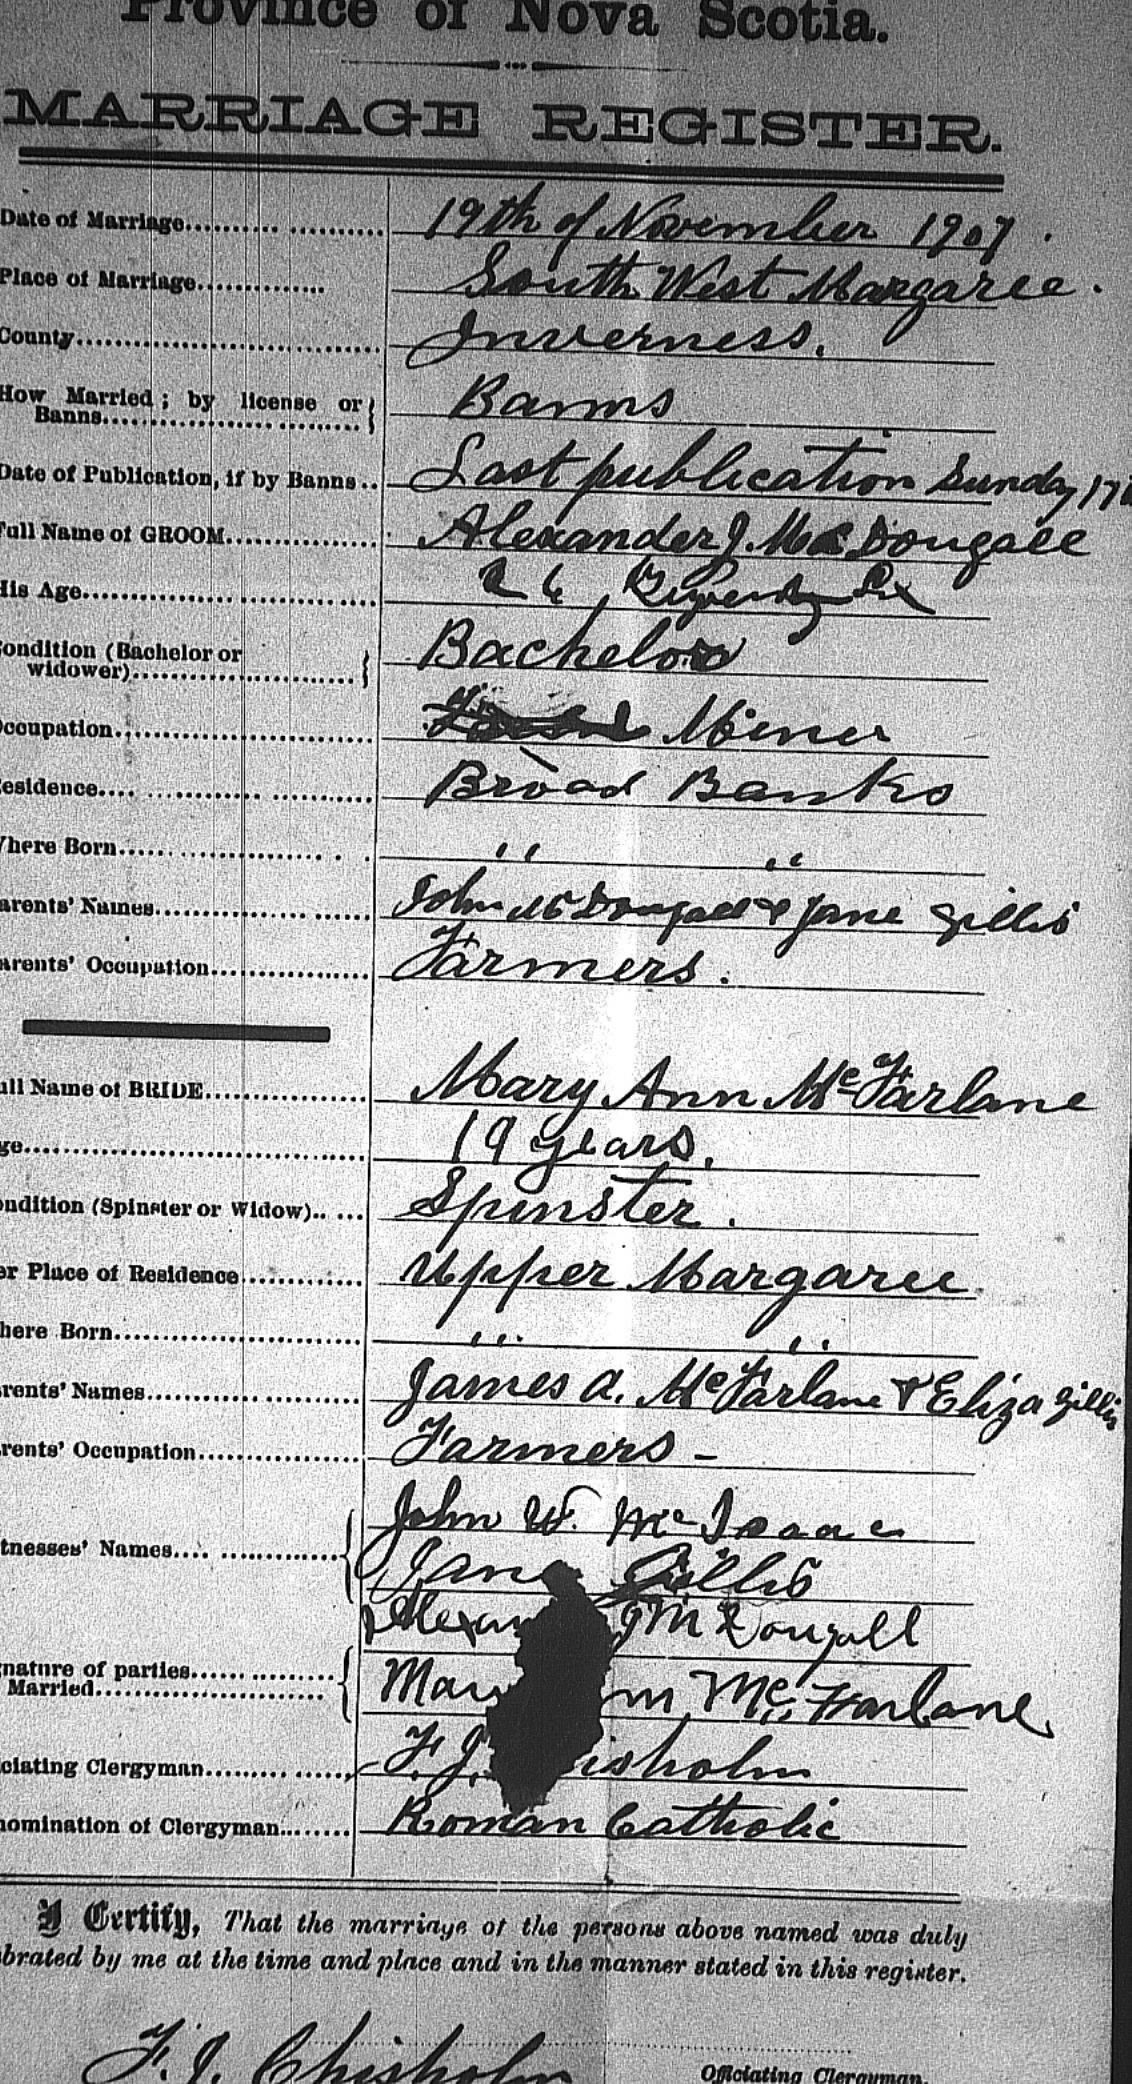 Province of Nova Scotia.
MARRIAGE REGISTER.
Date of Marriage 19th of November 1907.
Place of Marriage South West Margaree.
County Inverness.
How Married; by license or Banns Banns
Date of Publication, if by Banns Last publication Sunday 17
Full Name of GROOM Alexander J. McDougall
His Age 26
ondition (Bachelor or widower) Bachelor
ccupation Miner
esidence Broad Banks
here Born " "
arents' Names John McDougall & Jane Gillis
arents' Occupation Farmers.
ull Name of BRIDE Mary Ann McFarlane
ge 19 years.
ondition (Spinster or Widow) Spinster.
er Place of Residence Upper Margaree
here Born " "
rents' Names James A. McFarlane & Eliza Gillis
rents' Occupation Farmers -
John W. McIsaac
tnesses' Names Jane Gillis
Alexan J McDougall
nature of parties Married Mary nn McFarlane
ciating Clergyman F. J. isholm
nomination of Clergyman Roman Catholic
I Certify, That the marriage of the persons above named was duly
brated by me at the time and place and in the manner stated in this register.
F. J. Chisholm
Officiating Clergyman.